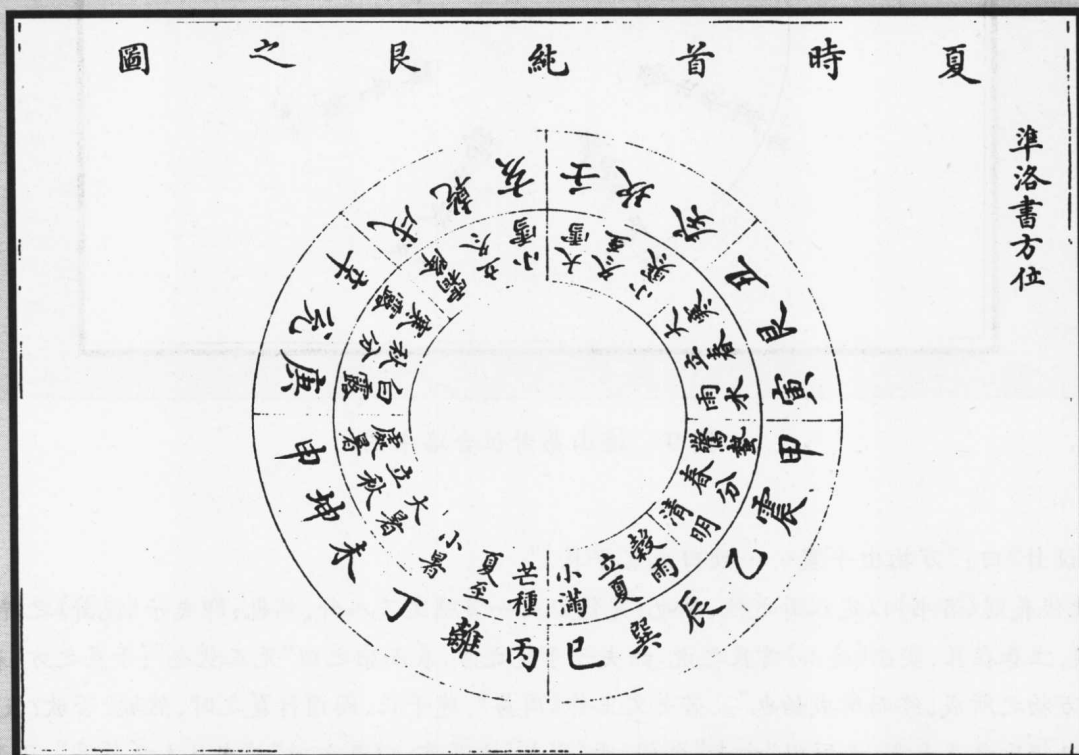 夏時首純艮之圖
準洛書方位
壬
坎
癸
丑
艮
寅
甲
震
乙
辰
巽
巳
丙
離
丁
未
坤
申
庚
兌
辛
戌
乾
亥
大雪
冬至
小寒
大寒
立春
雨水
驚蟄
春分
清明
穀雨
立夏
小滿
芒種
夏至
小暑
大暑
立秋
處暑
白露
秋分
寒露
霜降
立冬
小雪